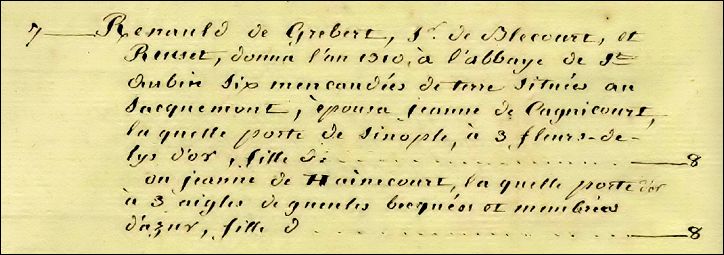 7 — Renauld de Grebert, Sr. de Blecourt, et
Reuset, donna l'an 1310, à l'abbaye de St.
Aubin six mencaudées de terre situées au
Jacquemont, épousa jeanne de Cagnicourt,
la quelle porte de Sinople, à 3 fleurs-de-
lys d'or, fille de . . . . . . . . . . . . — 8
ou jeanne de Hainecourt, la quelle porte d'or
à 3 aigles de gueules becquées et membrées
d'azur, fille d . . . . . . . . . . . . — 8